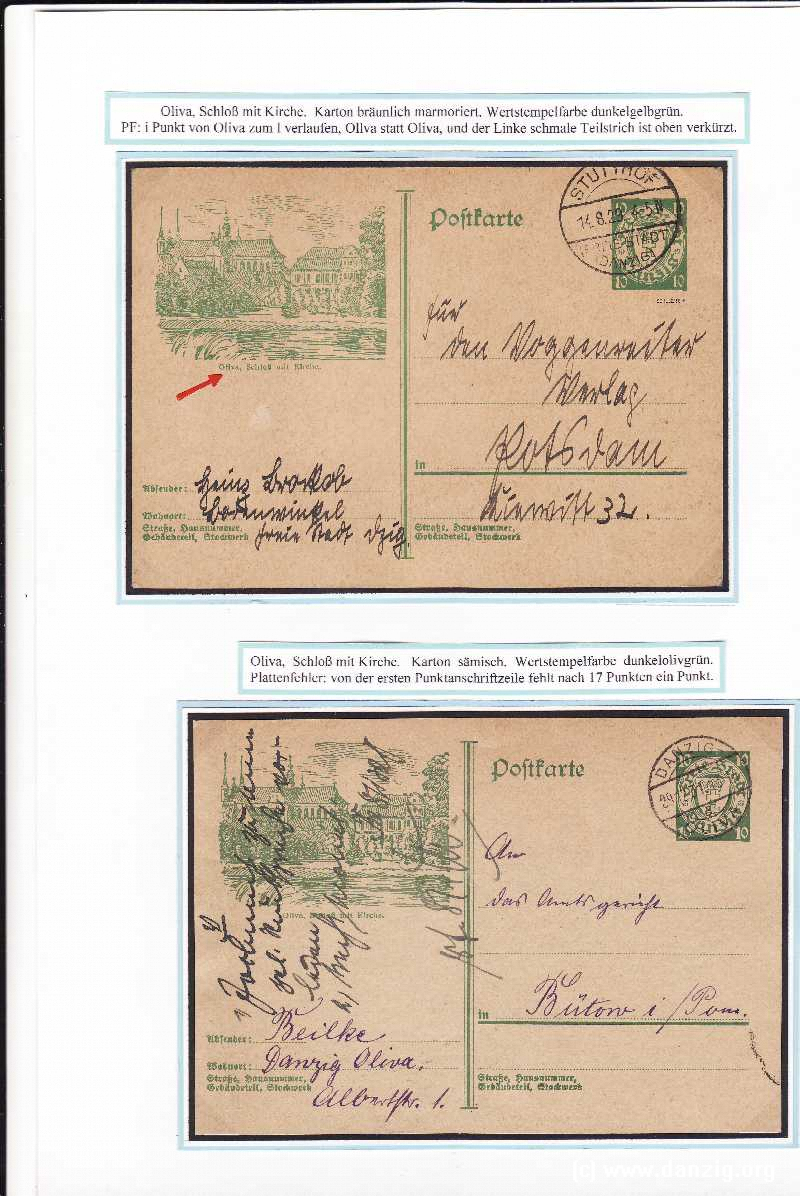 Oliva, Schloß mit Kirche. Karton bräunlich marmoriert. Wertstempelfarbe dunkelgelbgrün.
PF: i Punkt von Oliva zum l verlaufen, Ollva statt Oliva, und der Linke schmale Teilstrich ist oben verkürzt.
Postkarte
STUTTHOF
14.8.29.
DANZIG
10 10
10 10
Oliva, Schloß mit Kirche.
Für
den Voggenreiter
Verlag
in Potsdam
Kiewitt 32.
Absender: Heinz Brockob
Wohnort: Bodenwinkel
Straße, Hausnummer,
Gebäudeteil, Stockwerk
freie Stadt Dzig.
Straße, Hausnummer,
Gebäudeteil, Stockwerk
Oliva, Schloß mit Kirche. Karton sämisch. Wertstempelfarbe dunkelolivgrün.
Plattenfehler: von der ersten Punktanschriftzeile fehlt nach 17 Punkten ein Punkt.
Postkarte
DANZIG
10
10
Oliva, Schloß mit Kirche.
An
das Amtsgericht
in Bütow i/Pom.
Absender: Beilke
Wohnort: Danzig Oliva.
Straße, Hausnummer,
Gebäudeteil, Stockwerk
Albertstr. 1.
Straße, Hausnummer,
Gebäudeteil, Stockwerk
(c) www.danzig.org